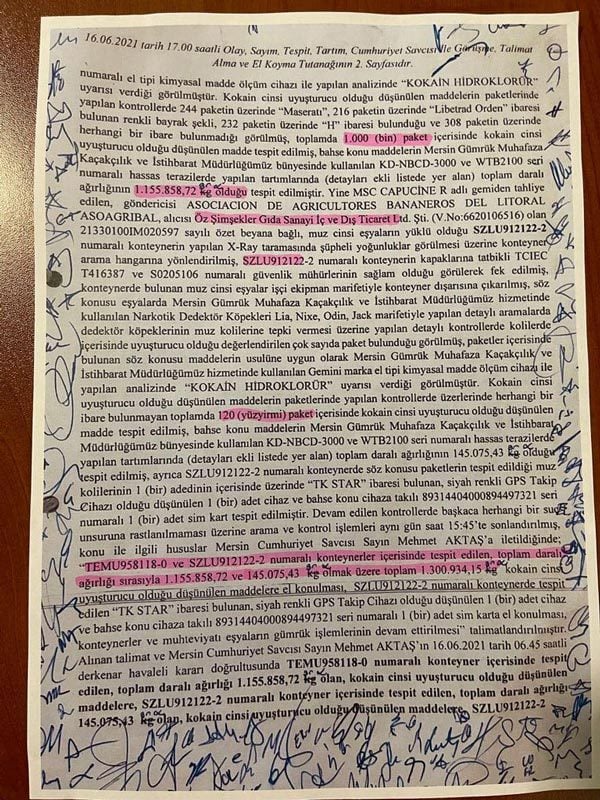 16.06.2021 tarih 17.00 saatli Olay, Sayım, Tespit, Tartım, Cumhuriyet Savcısı ile Görüşme, Talimat
Alma ve El Koyma Tutanağının 2. Sayfasıdır.
numaralı el tipi kimyasal madde ölçüm cihazı ile yapılan analizinde “KOKAİN HİDROKLORÜR”
uyarısı verdiği görülmüştür. Kokain cinsi uyuşturucu olduğu düşünülen maddelerin paketlerinde
yapılan kontrollerde 244 paketin üzerinde “Maserati”, 216 paketin üzerinde “Libetrad Orden” ibaresi
bulunan renkli bayrak şekli, 232 paketin üzerinde “H” ibaresi bulunduğu ve 308 paketin üzerinde
herhangi bir ibare bulunmadığı görülmüş, toplamda 1.000 (bin) paket içerisinde kokain cinsi
uyuşturucu olduğu düşünülen madde tespit edilmiş, bahse konu maddelerin Mersin Gümrük Muhafaza
Kaçakçılık ve İstihbarat Müdürlüğümüz bünyesinde kullanılan KD-NBCD-3000 ve WTB2100 seri
numaralı hassas terazilerde yapılan tartımlarında (detayları ekli listede yer alan) toplam daralı
ağırlığının 1.155.858,72 olduğu tespit edilmiştir. Yine MSC CAPUCINE R adlı gemiden tahliye
edilen, göndericisi ASOCIACION DE AGRICULTORES BANANEROS DEL LITORAL
ASOAGRIBAL, alıcısı Öz Şimşekler Gıda Sanayi İç ve Dış Ticaret Ltd. Şti. (V.No:6620106516) olan
21330100IM020597 sayılı özet beyana bağlı, muz cinsi eşyaların yüklü olduğu SZLU912122-2
numaralı konteynerin yapılan X-Ray taramasında şüpheli yoğunluklar görülmesi üzerine konteyner
arama hangarına yönlendirilmiş, SZLU912122-2 numaralı konteynerin kapaklarına tatbikli TCIEC
T416387 ve S0205106 numaralı güvenlik mühürlerinin sağlam olduğu görülerek fek edilmiş,
konteynerde bulunan muz cinsi eşyalar işçi ekipman marifetiyle konteyner dışarısına çıkarılmış, söz
konusu eşyalarda Mersin Gümrük Muhafaza Kaçakçılık ve İstihbarat Müdürlüğümüz hizmetinde
kullanılan Narkotik Dedektör Köpekleri Lia, Nixe, Odin, Jack marifetiyle yapılan detaylı aramalarda
dedektör köpeklerinin muz kolilerine tepki vermesi üzerine yapılan detaylı kontrollerde kolilerde
içerisinde uyuşturucu olduğu değerlendirilen çok sayıda paket bulunduğu görülmüş, paketler içerisinde
bulunan söz konusu maddelerin usulüne uygun olarak Mersin Gümrük Muhafaza Kaçakçılık ve
İstihbarat Müdürlüğümüz hizmetinde kullanılan Gemini marka el tipi kimyasal madde ölçüm cihazı ile
yapılan analizinde “KOKAİN HİDROKLORÜR” uyarısı verdiği görülmüştür. Kokain cinsi
uyuşturucu olduğu düşünülen maddelerin paketlerinde yapılan kontrollerde üzerlerinde herhangi bir
ibare bulunmayan toplamda 120 (yüzyirmi) paket içerisinde kokain cinsi uyuşturucu olduğu düşünülen
madde tespit edilmiş, bahse konu maddelerin Mersin Gümrük Muhafaza Kaçakçılık ve İstihbarat
Müdürlüğümüz bünyesinde kullanılan KD-NBCD-3000 ve WTB2100 seri numaralı hassas terazilerde
yapılan tartımlarında (detayları ekli listede yer alan) toplam daralı ağırlığının 145.075,43 olduğu
tespit edilmiş, ayrıca SZLU912122-2 numaralı konteynerde söz konusu paketlerin tespit edildiği muz
kolilerinin 1 (bir) adedinin içerisinde “TK STAR” ibaresi bulunan, siyah renkli GPS Takip
Cihazı olduğu düşünülen 1 (bir) adet cihaz ve bahse konu cihaza takılı 89314404000894497321 seri
numaralı 1 (bir) adet sim kart tespit edilmiştir. Devam edilen kontrollerde başkaca herhangi bir suç
unsuruna rastlanılmaması üzerine arama ve kontrol işlemleri aynı gün saat 15:45’te sonlandırılmış,
konu ile ilgili hususlar Mersin Cumhuriyet Savcısı Sayın Mehmet AKTAŞ’a iletildiğinde;
“TEMU958118-0 ve SZLU912122-2 numaralı konteynerler içerisinde tespit edilen, toplam daralı
ağırlığı sırasıyla 1.155.858,72 ve 145.075,43 olmak üzere toplam 1.300.934,15 kokain cinsi
uyuşturucu olduğu düşünülen maddelere el konulması, SZLU912122-2 numaralı konteynerde tespit
edilen “TK STAR” ibaresi bulunan, siyah renkli GPS Takip Cihazı olduğu düşünülen 1 (bir) adet cihaz
ve bahse konu cihaza takılı 89314404000894497321 seri numaralı 1 (bir) adet sim karta el konulması,
konteynerler ve muhteviyatı eşyaların gümrük işlemlerinin devam ettirilmesi” talimatlandırılmıştır.
Alınan talimat ve Mersin Cumhuriyet Savcısı Sayın Mehmet AKTAŞ’ın 16.06.2021 tarih 06.45 saatli
derkenar havaleli kararı doğrultusunda TEMU958118-0 numaralı konteyner içerisinde tespit
edilen, toplam daralı ağırlığı 1.155.858,72 olan, kokain cinsi uyuşturucu olduğu düşünülen
maddelere, SZLU912122-2 numaralı konteyner içerisinde tespit edilen, toplam daralı ağırlığı
145.075,43 olan, kokain cinsi uyuşturucu olduğu düşünülen maddelere, SZLU912122-2